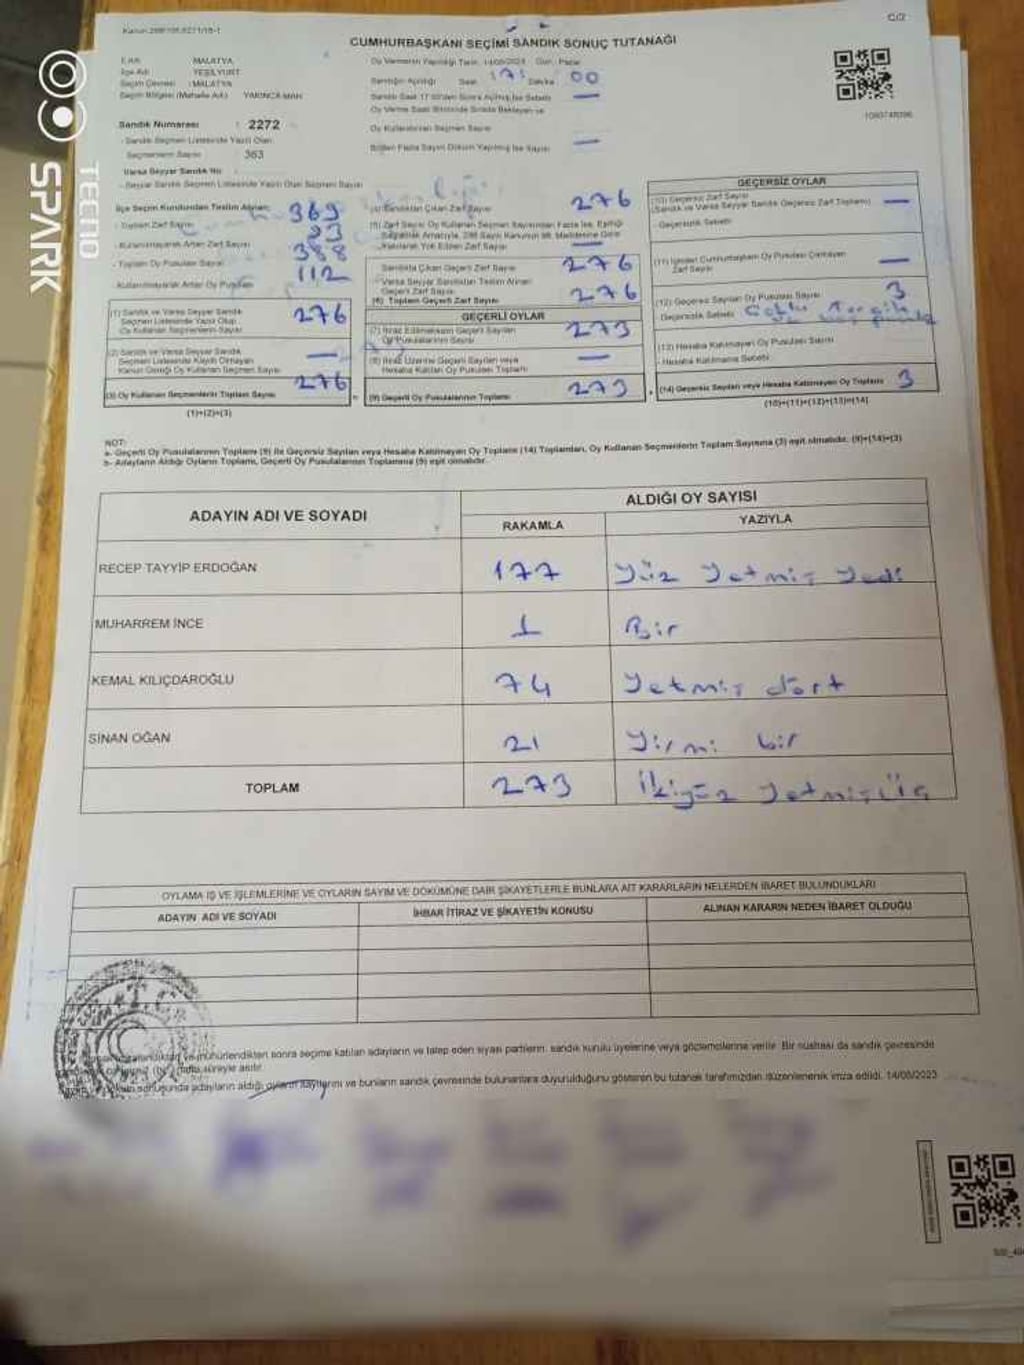 CUMHURBAŞKANI SEÇİMİ SANDIK SONUÇ TUTANAĞI
C/2
İl Adı MALATYA
İlçe Adı YEŞİLYURT
Seçim Çevresi : MALATYA
Seçim Bölgesi (Mahalle Adı) YAKINCA MAH.
Sandık Numarası : 2272
- Sandık Seçmen Listesinde Yazılı Olan
Seçmenlerin Sayısı 363
Varsa Seyyar Sandık No
- Seyyar Sandık Seçmen Listesinde Yazılı Olan Seçmen Sayısı
Oy Vermenin Yapıldığı Tarih: 14/05/2023 Gün: Pazar
Sandığın Açıldığı Saat 17: Dakika 00
Sandık Saat 17:00'den Sonra Açılmış İse Sebebi —
Oy Verme Saati Bitiminde Sırada Bekleyen ve
Oy Kullandırılan Seçmen Sayısı
Birden Fazla Sayım Döküm Yapılmış İse Sayısı —
1060748396
İlçe Seçim Kurulundan Teslim Alınan;
- Toplam Zarf Sayısı 369
- Kullanılmayarak Artan Zarf Sayısı 93
- Toplam Oy Pusulası Sayısı 388
- Kullanılmayarak Artan Oy Pusulası 112
(1) Sandık ve Varsa Seyyar Sandık
Seçmen Listesinde Yazılı Olup
Oy Kullanan Seçmenlerin Sayısı 276
(2) Sandık ve Varsa Seyyar Sandık
Seçmen Listesinde Kaydı Olmayan
Kanun Gereği Oy Kullanan Seçmen Sayısı —
(3) Oy Kullanan Seçmenlerin Toplam Sayısı 276
(1)+(2)=(3)
(4) Sandıktan Çıkan Zarf Sayısı 276
(5) Zarf Sayısı Oy Kullanan Seçmen Sayısından Fazla İse, Eşitliği
Sağlamak Amacıyla, 298 Sayılı Kanunun 98. Maddesine Göre
Yakılarak Yok Edilen Zarf Sayısı —
Sandıkta Çıkan Geçerli Zarf Sayısı 276
- Varsa Seyyar Sandıktan Teslim Alınan
Geçerli Zarf Sayısı
(6) Toplam Geçerli Zarf Sayısı 276
GEÇERLİ OYLAR
(7) İtiraz Edilmeksizin Geçerli Sayılan
Oy Pusulalarının Sayısı 273
(8) İtiraz Üzerine Geçerli Sayılan veya
Hesaba Katılan Oy Pusulası Toplamı —
(9) Geçerli Oy Pusulalarının Toplamı 273
GEÇERSİZ OYLAR
(10) Geçersiz Zarf Sayısı
(Sandık ve Varsa Seyyar Sandık Geçersiz Zarf Toplamı) —
- Geçersizlik Sebebi:
(11) İçinden Cumhurbaşkanı Oy Pusulası Çıkmayan
Zarf Sayısı —
(12) Geçersiz Sayılan Oy Pusulası Sayısı 3
- Geçersizlik Sebebi:
(13) Hesaba Katılmayan Oy Pusulası Sayısı
- Hesaba Katılmama Sebebi:
(14) Geçersiz Sayılan veya Hesaba Katılmayan Oy Toplamı 3
(10)+(11)+(12)+(13)=(14)
NOT:
a- Geçerli Oy Pusulalarının Toplamı (9) ile Geçersiz Sayılan veya Hesaba Katılmayan Oy Toplamı (14) Toplamları, Oy Kullanan Seçmenlerin Toplam Sayısına (3) eşit olmalıdır. (9)+(14)=(3)
b- Adayların Aldığı Oyların Toplamı, Geçerli Oy Pusulalarının Toplamına (9) eşit olmalıdır.
ADAYIN ADI VE SOYADI ALDIĞI OY SAYISI
RAKAMLA YAZIYLA
RECEP TAYYİP ERDOĞAN 177 Yüz Yetmiş Yedi
MUHARREM İNCE 1 Bir
KEMAL KILIÇDAROĞLU 74 Yetmiş dört
SİNAN OĞAN 21 Yirmi bir
TOPLAM 273 İkiyüz Yetmiş üç
OYLAMA İŞ VE İŞLEMLERİNE VE OYLARIN SAYIM VE DÖKÜMÜNE DAİR ŞİKAYETLERLE BUNLARA AİT KARARLARIN NELERDEN İBARET BULUNDUKLARI
ADAYIN ADI VE SOYADI İHBAR İTİRAZ VE ŞİKAYETİN KONUSU ALINAN KARARIN NEDEN İBARET OLDUĞU
mühürlendikten sonra seçime katılan adayların ve talep eden siyasi partilerin, sandık kurulu üyelerine veya gözlemcilerine verilir. Bir nüshası da sandık çevresinde
hafta süreyle asılır.
sonucunda adayların aldığı oyların sayılarını ve bunların sandık çevresinde bulunanlara duyurulduğunu gösteren bu tutanak tarafımızdan düzenlenerek imza edildi. 14/05/2023
TECNO
SPARK